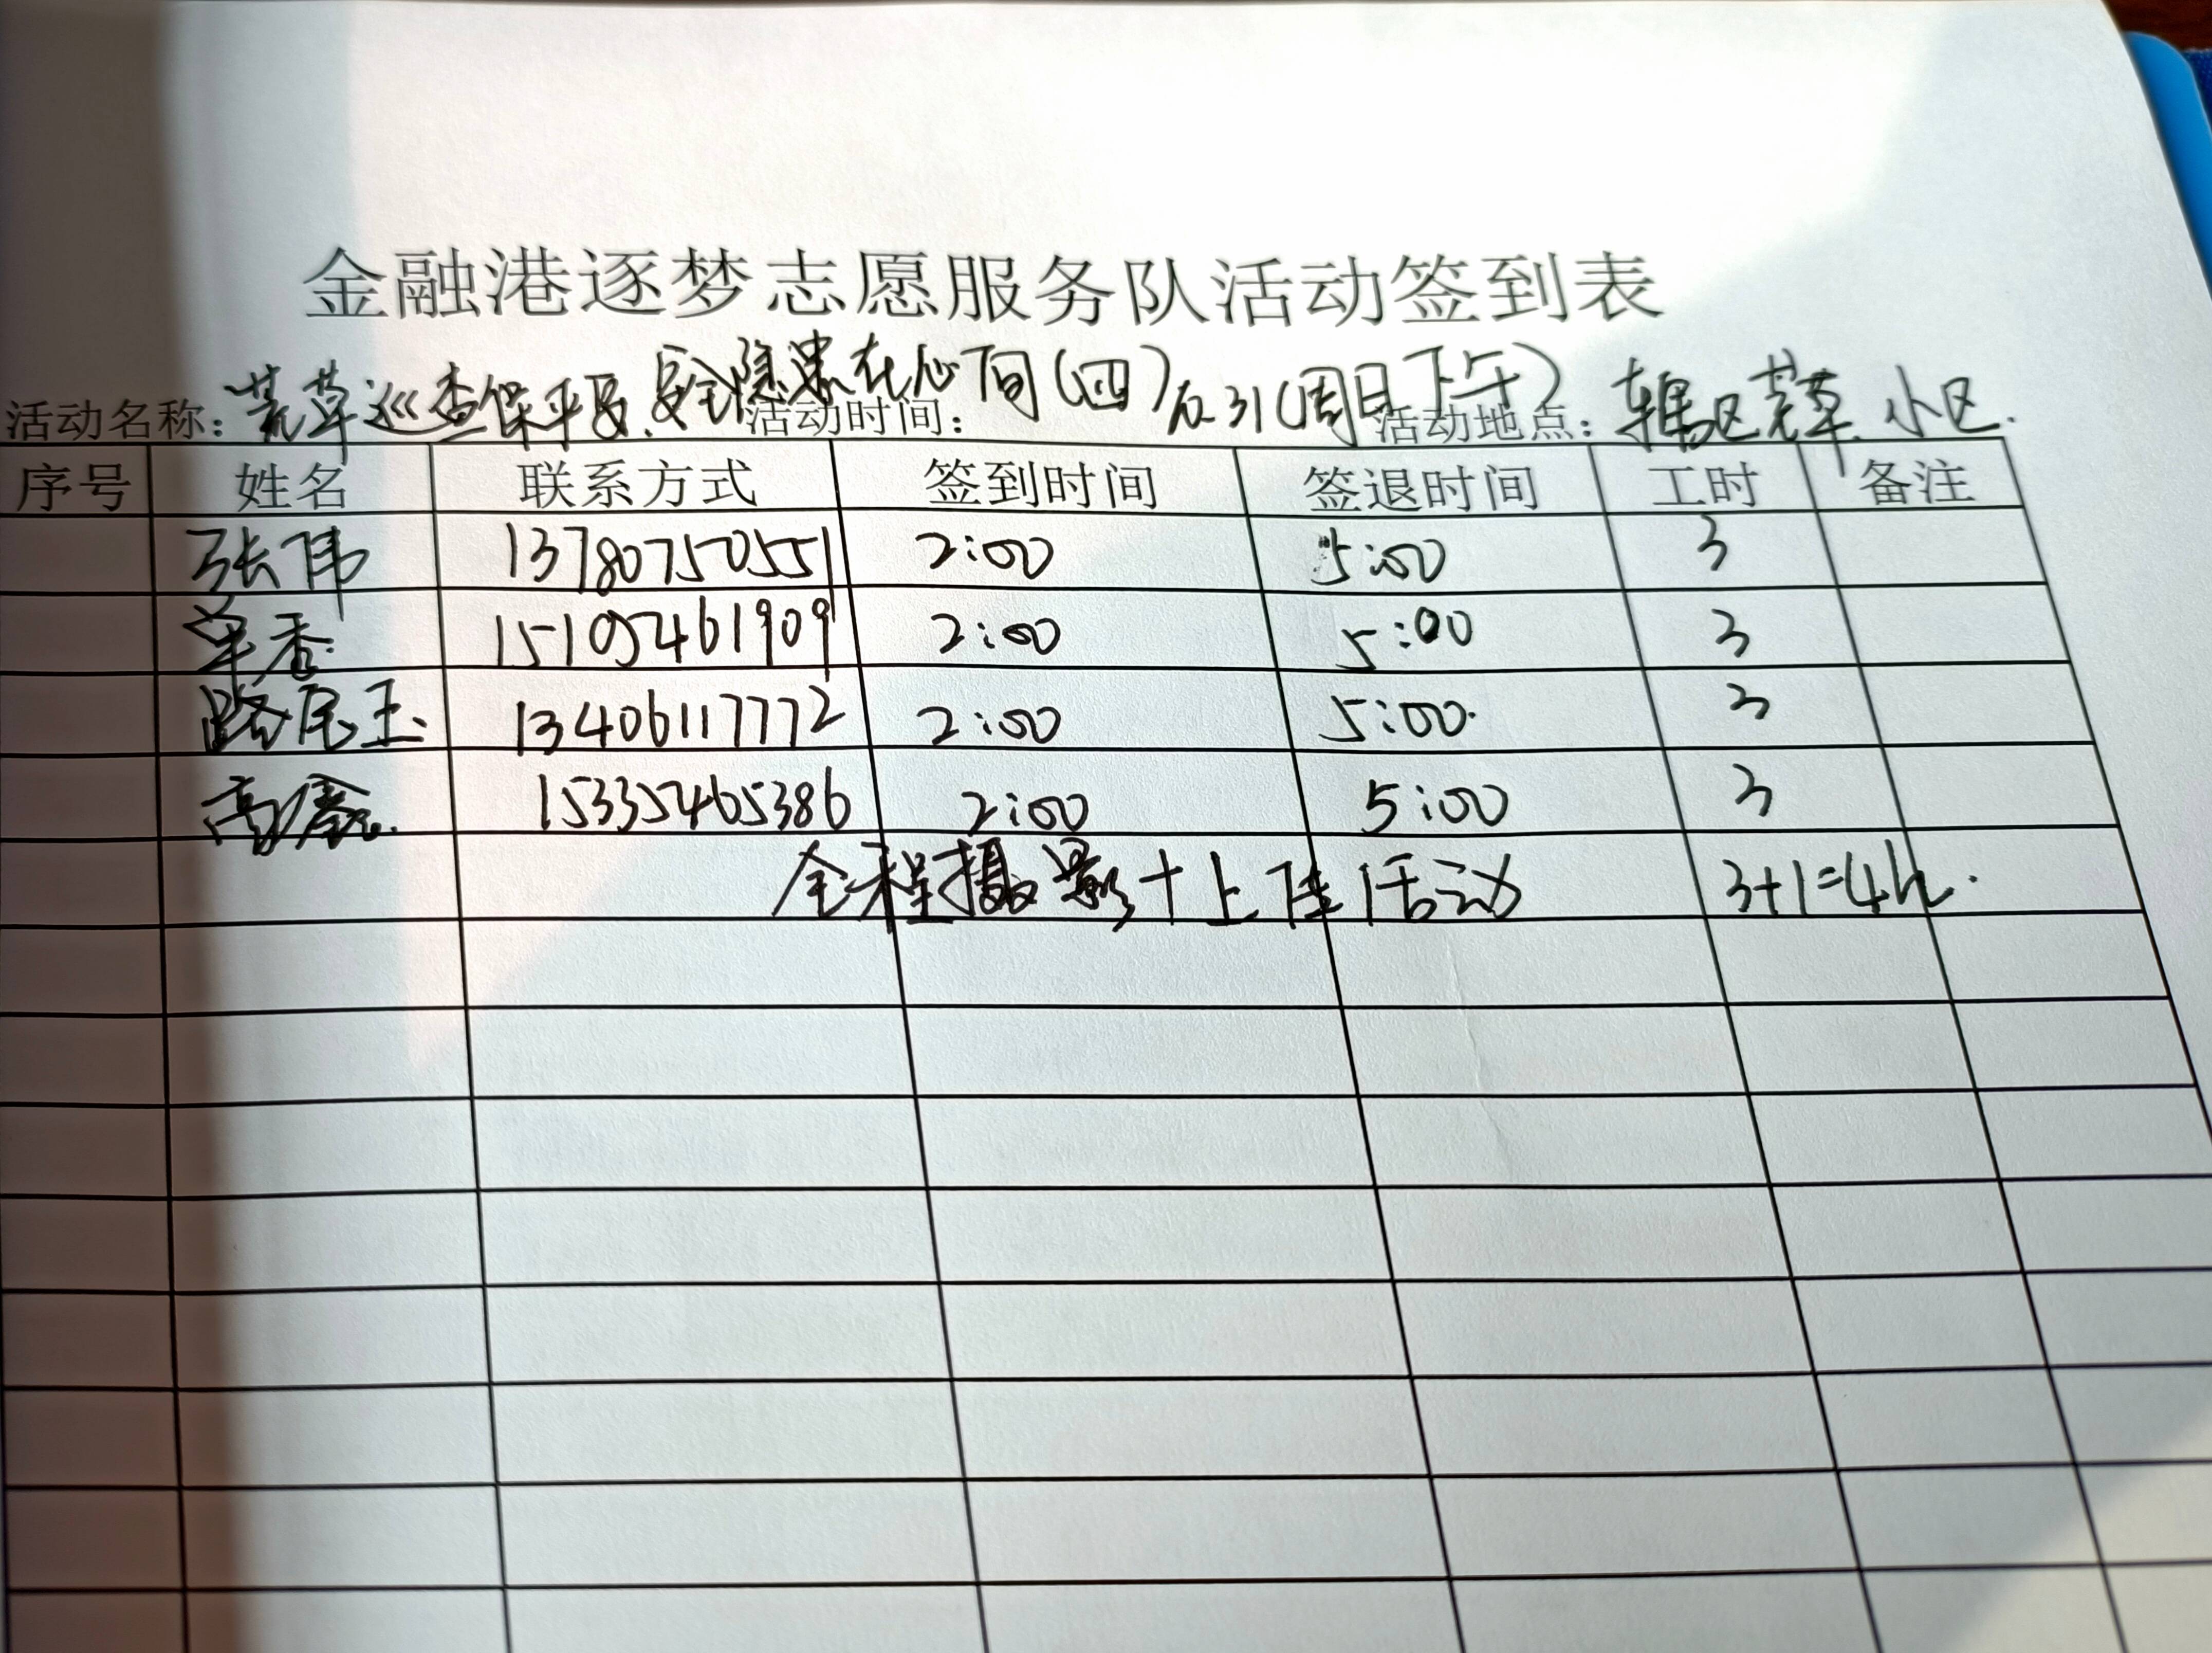 金融港逐梦志愿服务队活动签到表
活动名称：荒草巡查保平安.安全隐患在心间(四) 活动时间： 31(周日下午) 活动地点：辖区荒草.小区.
序号 姓名 联系方式 签到时间 签退时间 工时 备注
张伟 13780750551 2:00 5:00 3
单香 15105461909 2:00 5:00 3
路尾玉 13406117772 2:00 5:00. 3
高鑫 15335465386 2:00 5:00 3
全程摄影+上传活动 3+1=4h.